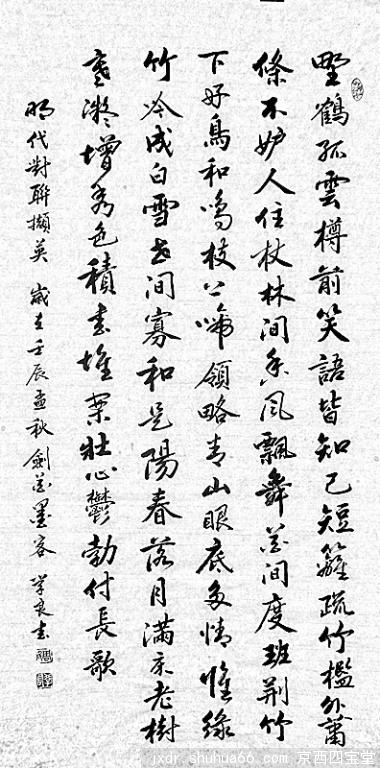 野鶴孤雲樽前笑語皆知己短籬疏竹檻外蕭
條不妒人住杖林间香风飄舞花间度班荆竹
下好鳥和鳴枝上啼領略青山眼底多情惟綠
竹冷成白雪世间寡和是陽春落月滿床老樹
寒凝增秀色積書堆案壯心鬱勃付長歌
明代對聯擷英 歲在壬辰孟秋劍花墨客學良書
jxdr.shuhua66.com 京西四宝堂